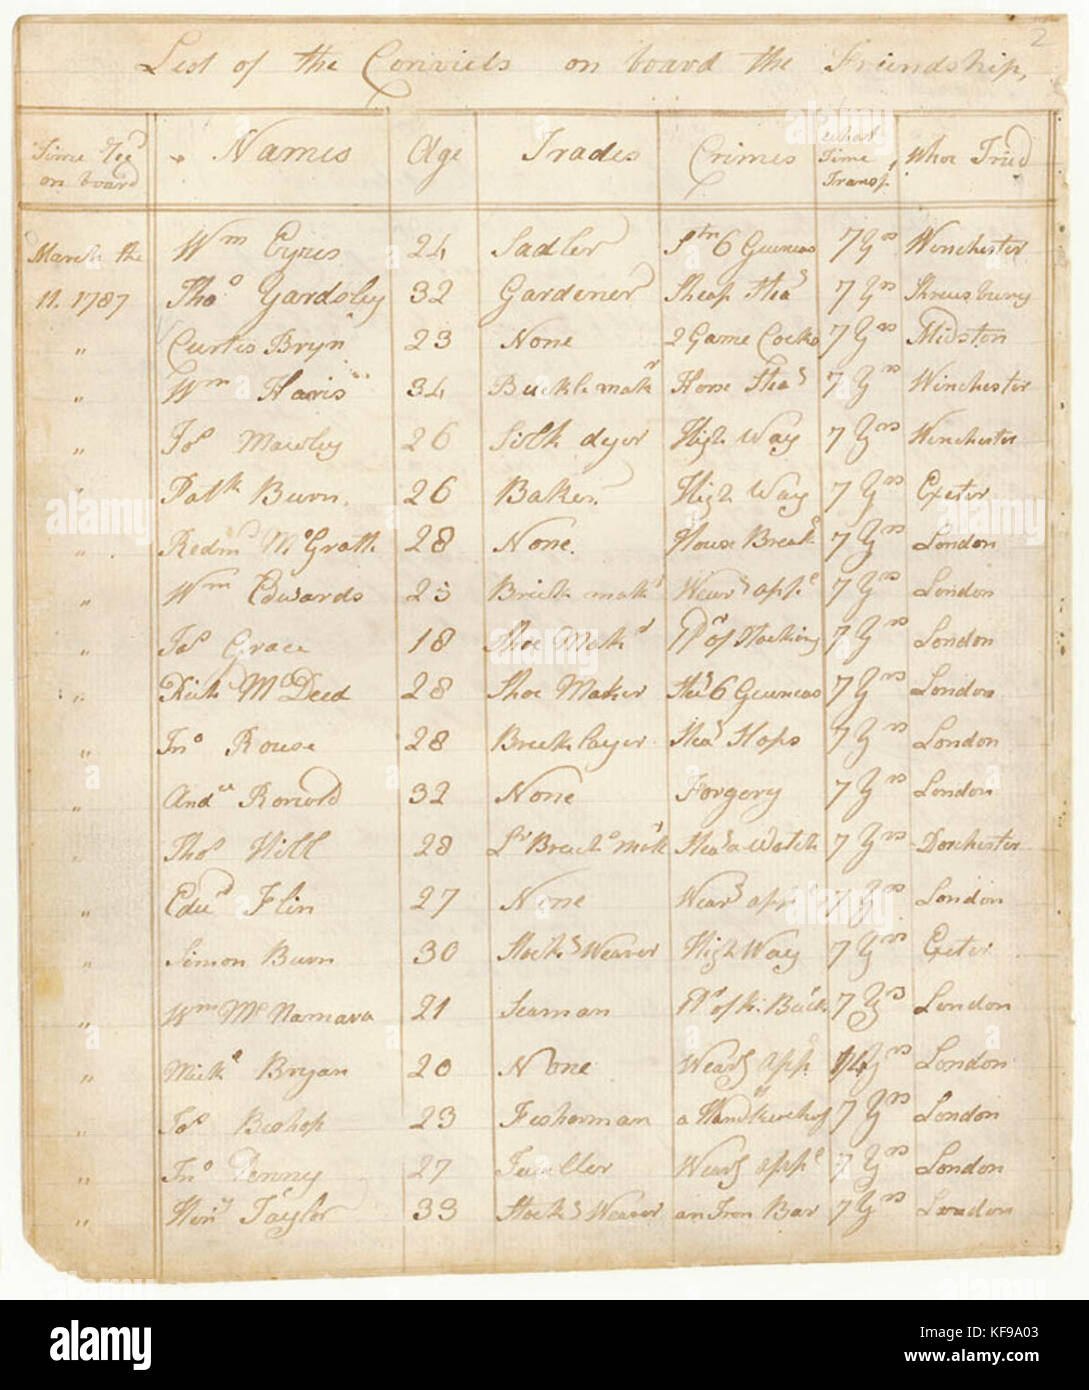 2
List of the Convicts on board the Friendship,
Time Rec'd on board Names Age Trades Crimes what Time Transp. Whre Tried
March the Wm Eyres 24 Sadler Stn 6 Guineas 7 Yrs Winchester
11. 1787 Thos Yardsley 32 Gardener Sheap Stea 7 Yrs Shreusbury
" Curtis Bryn 23 None 2 Game Cocks 7 Yrs Midston
" Wm Haris 34 Buckle makr Horse Steas 7 Yrs Winchester
" Jos Mawley 26 Silk dyer High Way 7 Yrs Winchester
" Patk Burn. 26 Baker. High Way 7 Yrs Exeter
" Redmd McGrath 28 None. House Break 7 Yrs London
" Wm Edwards 25 Brick makr Wears appl 7 Yrs London
" Jas Grace 18 Shoe Makr Pr of Stocking 7 Yrs London
" Rich McDeed 28 Shoe Maker Stea 6 Guineas 7 Yrs London
" Jno Rouse 28 Breeklayer Stea Hops 7 Yrs London
" Andw Ronord 32 None Forgery 7 Yrs London
" Thos Hill 28 Lr Breechs makr Stea a Watch 7 Yrs Dorchester
" Edwd Flin 27 None Wears app 7 Yrs London
" Simon Burn 30 Stocks Weaver High Way 7 Yrs Exeter
" Wm McNamara 21 Seaman Pr of k. Buck 7 Ys London
" Michl Bryan 20 None Wears app 14 Yrs London
" Jos Bishop 23 Fisherman a Handkerchf 7 Yrs London
" Jno Penny 27 Jueller Wears appl 7 Yrs London
" Heny Taylor 33 Stocks Weaver an Iron Bar 7 Yrs London
alamy
Image ID: KF9A03
www.alamy.com